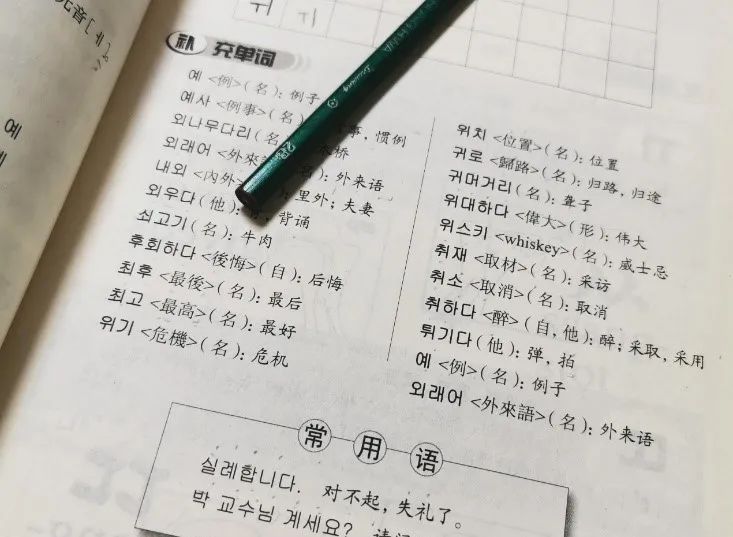 ㅟ ㅟ
元音[ㅔ]
예
补充单词
예 <例>(名): 例子
예사 <例事>(名 事, 惯例
외나무다리(名 木桥
외래어 <外來 名): 外来语
내외 <内外 : 里外; 夫妻
외우다(他): 背诵
쇠고기(名): 牛肉
후회하다 <後悔>(自): 后悔
최후 <最後>(名): 最后
최고 <最高>(名): 最好
위기 <危機>(名): 危机
위치 <位置>(名): 位置
귀로 <歸路>(名): 归路, 归途
귀머거리(名): 聋子
위대하다 <偉大>(形): 伟大
위스키 <whiskey>(名): 威士忌
취재 <取材>(名): 采访
취소 <取消>(名): 取消
취하다 <醉>(自, 他): 醉; 采取, 采用
튀기다(他): 弹, 拍
예 <例>(名): 例子
외래어 <外來語>(名): 外来语
常用语
실례합니다. 对不起, 失礼了。
박 교수님 계세요? 请问